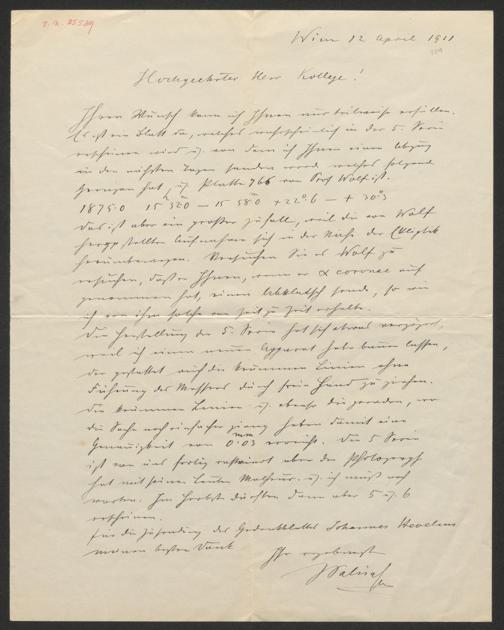 Wien 12 April 1911
Hochgeehrter Herr Kollege!
Ihren Wunsch kann ich Ihnen nur teilweise erfüllen.
Es ist ein Blatt da, welches wahrscheinlich in der 5. Serie
erscheinen wird u. von dem ich Ihnen einen Abzug
in den nächsten Tagen senden werde welches folgende
Grenzen hat, Platte 766 von Prof Wolf ist.
1875.0 15h 32.0 — 15 58.0 +22°.6 — + 30°.3
Das ist aber ein großer Zufall, weil die von Wolf
hergestellten Aufnahmen sich in der Nähe der Ekliptik
herumbewegen. Versuchen Sie es Wolf zu
ersuchen, daß er Ihnen, wenn er α coronae auf
genommen hat, einen Abklatsch sende, so wie
ich von ihm solche von Zeit zu Zeit erhalte.
Die Herstellung der 5. Serie hat sich etwas verzögert,
weil ich einen neuen Apparat habe bauen lassen,
der gestattet auch die krummen Linien ohne
Führung des Messers durch freie Hand zu ziehen.
Die krummen Linien u. ebenso die geraden, wo
die Sache noch einfacher ging haben damit eine
Genauigkeit von 0.03 mm erreicht. Die 5 Serie
ist von mir fertig aber der Photograph
hat mit seinen Leuten Malheur u. ich muß noch
warten. Im Herbst dürften dann aber 5 u. 6
erscheinen.
Für die Zusendung des Gedenkblattes Johannes Hevelius
meinen besten Dank
Ihr ergebenster
J Palisa